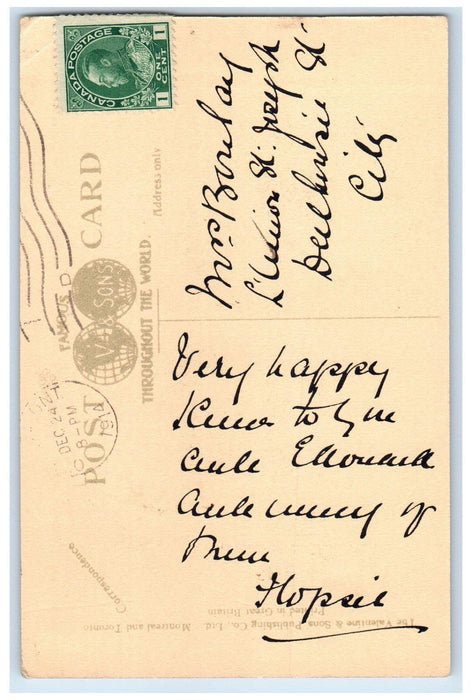 CANADA POSTAGE
1 ONE CENT 1
POST CARD
FAMOUS
V & SONS
THROUGHOUT THE WORLD.
Address only
Correspondence
DEC 24
8 - PM
1914
Mrs
St. Joseph
Dalhousie St
City
Very happy
to you
and Edouard
and many of
Flopsie
The Valentine & Sons Publishing Co., Ltd. Montreal and Toronto
Printed in Great Britain